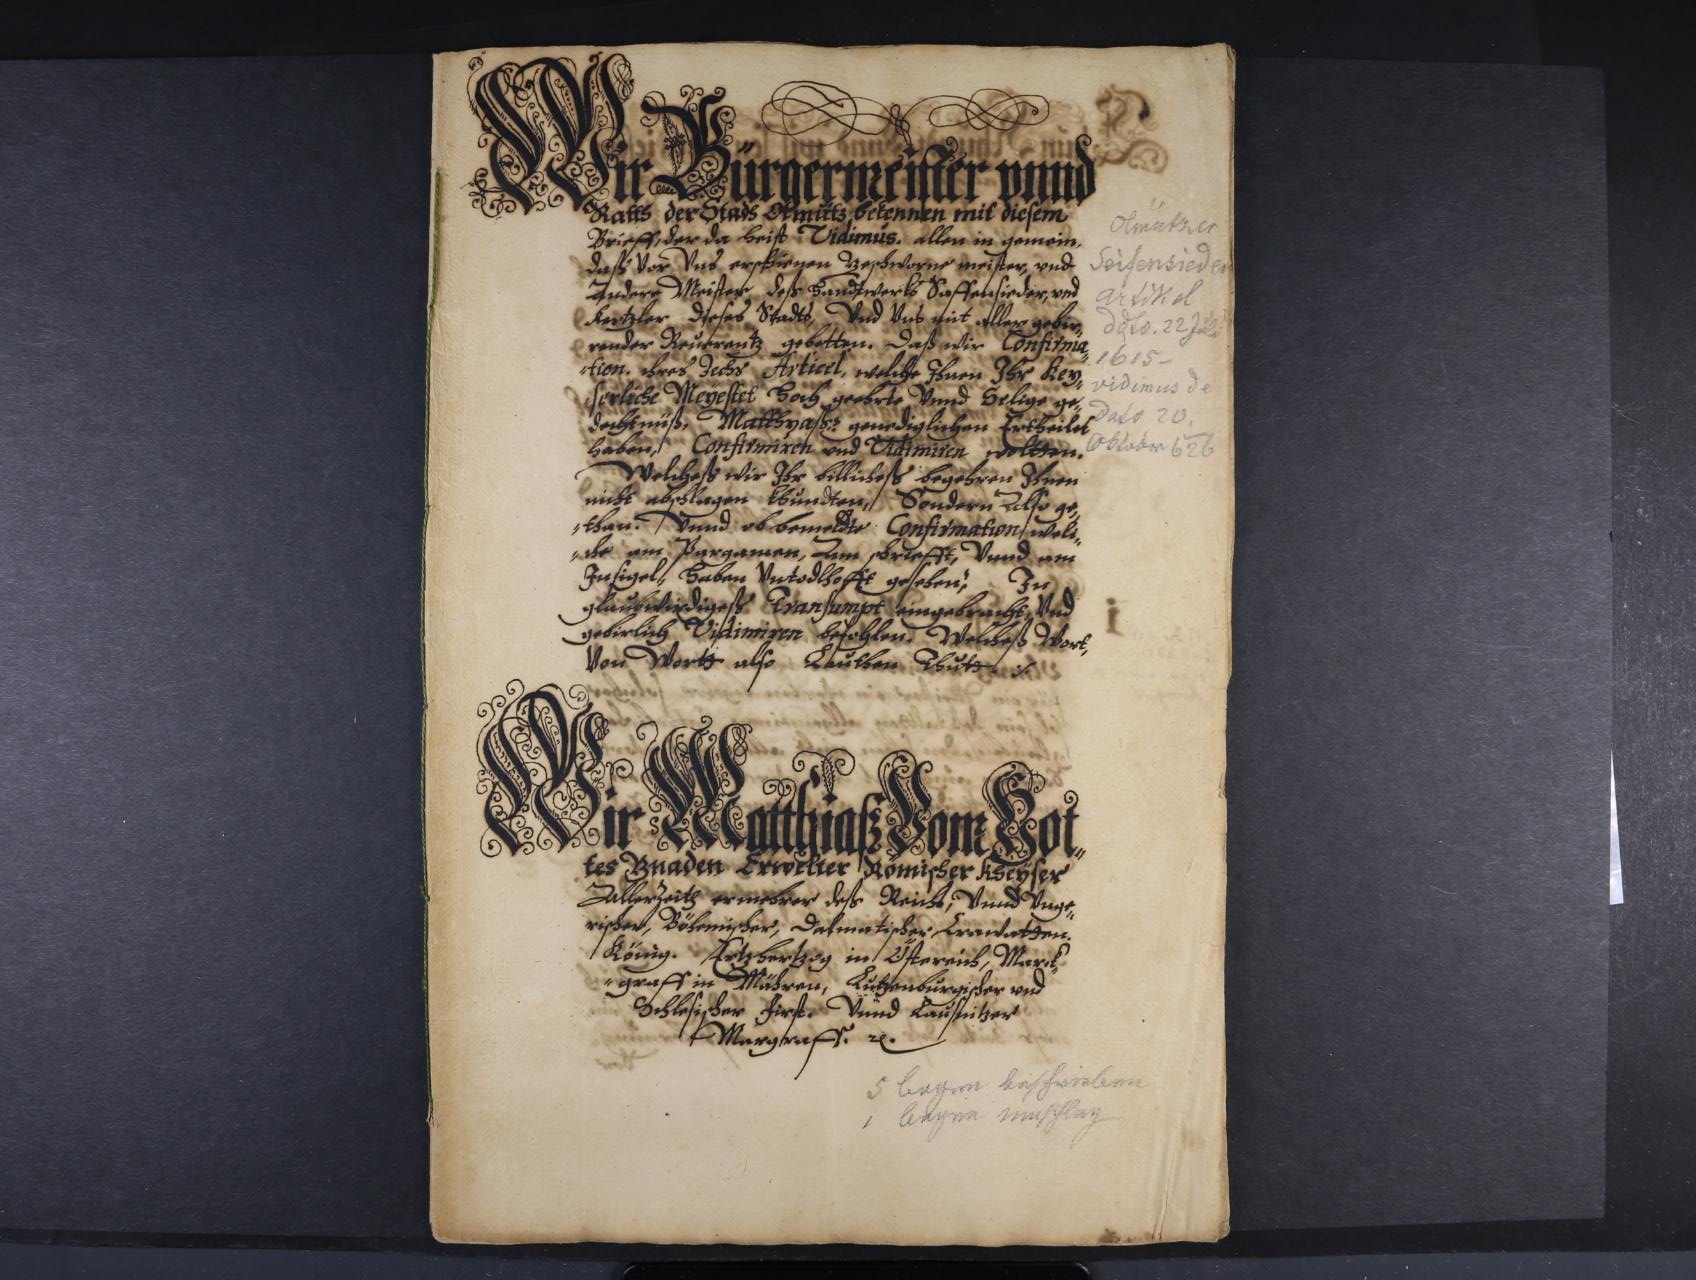 Wir Bürgermeister vnnd
Ratts der Stads Olmütz bekennen mit diesem
Brieff, der da heist Vidimus. allen in gemein,
daß Vor Vns erschienen geschworne meister, vnd
Andere Meister deß Handtwerks Saffensieder, vnd
Kertzler dieses Stadts, Vnd Vns mit aller gebü-
render Reuerentz gebetten. Daß wir Confirma-
tion. ihres Zechs Articel, welche Ihnen Ihr Key-
serliche Meyestet Hoch geehrte Vnnd Selige ge-
dechtnüß, Matthyaß: genediglichen Ertheilet
haben, Confirmiren vnd Vidimiren wolten.
Welcheß wir Ihr billicheß begehren Ihnen
nicht abschlagen khundten, Sondern Also ge-
than. Vnnd ob bemeldte Confirmation, wel-
che am Pargamen, Am schriefft, Vnnd am
Insigel, Haben Vntodlhofft gesehen, In
glaubwirdigeß Transumpt eingebracht, Vnd
gebirlich Vidimiren befohlen. Welcheß Wort,
Von Wortt also Lautten Thutt ./.
Wir Matthiaß Vom Got-
tes Gnaden Erwelter Römischer Kheyser
Zallerzeitt ermehrer deß Reichs, Vnnd Vnge-
rischer, Böhemischer, Dalmatischer, Crawatten.
König. Ertzhertzog in Östereich, Marck-
graff in Mähren, Lutzenburgischer vnd
Schlesischer first. Vnnd Lausnitzer
Margraff. ꝛc.
Olmützer
Seifensieder
artikel
ddto. 22 Juli
1615-
vidimus de
Dato 20.
Oktober 626
5 bogen beschrieben
1 bogen umschlag